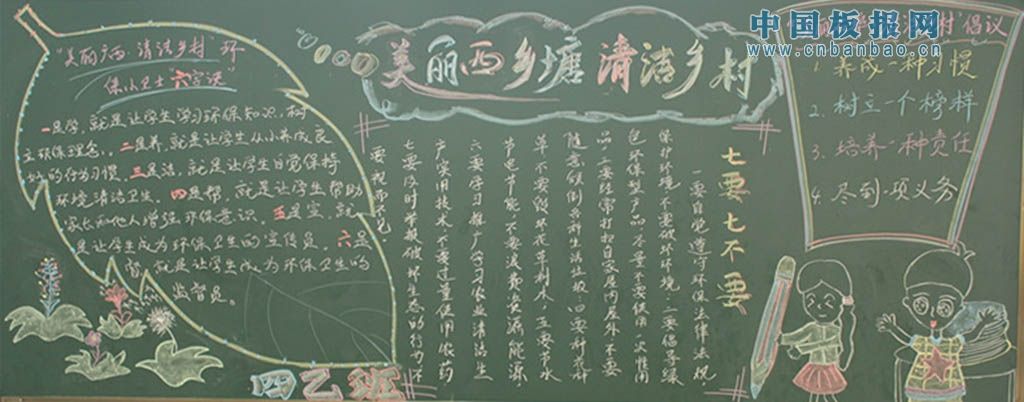 中国板报网
www.cnbanbao.cn
美丽西乡塘 清洁乡村
"美丽广西·清洁乡村"环
保小卫士"六字诀"
一是学,就是让学生学习环保知识,树
立环保理念。二是养,就是让学生从小养成良
好的行为习惯。三是洁,就是让学生自觉保持
环境清洁卫生。四是帮,就是让学生帮助
家长和他人增强环保意识。五是宣,就
是让学生成为环保卫生的宣传员。六是
督,就是让学生成为环保卫生的
监督员。
四乙班
七要七不要
一要自觉遵守环保法律法规,
保护环境,不要破坏环境;二要倡导绿
色环保型产品,不要使用一次性用
品;三要经常打扫自家房内屋外,不要
随意倾倒
草,不要毁坏花草树木;五要节水
节电节能,不要浪费资源能源;
六要学习推广学习农业清洁生
产实用技术,不要过量使用农药
七要及时举报破坏生态的行为,不
要视而不见
倡议
1. 养成一种习惯
2. 树立一个榜样
3. 培养一种责任
4. 尽到一项义务